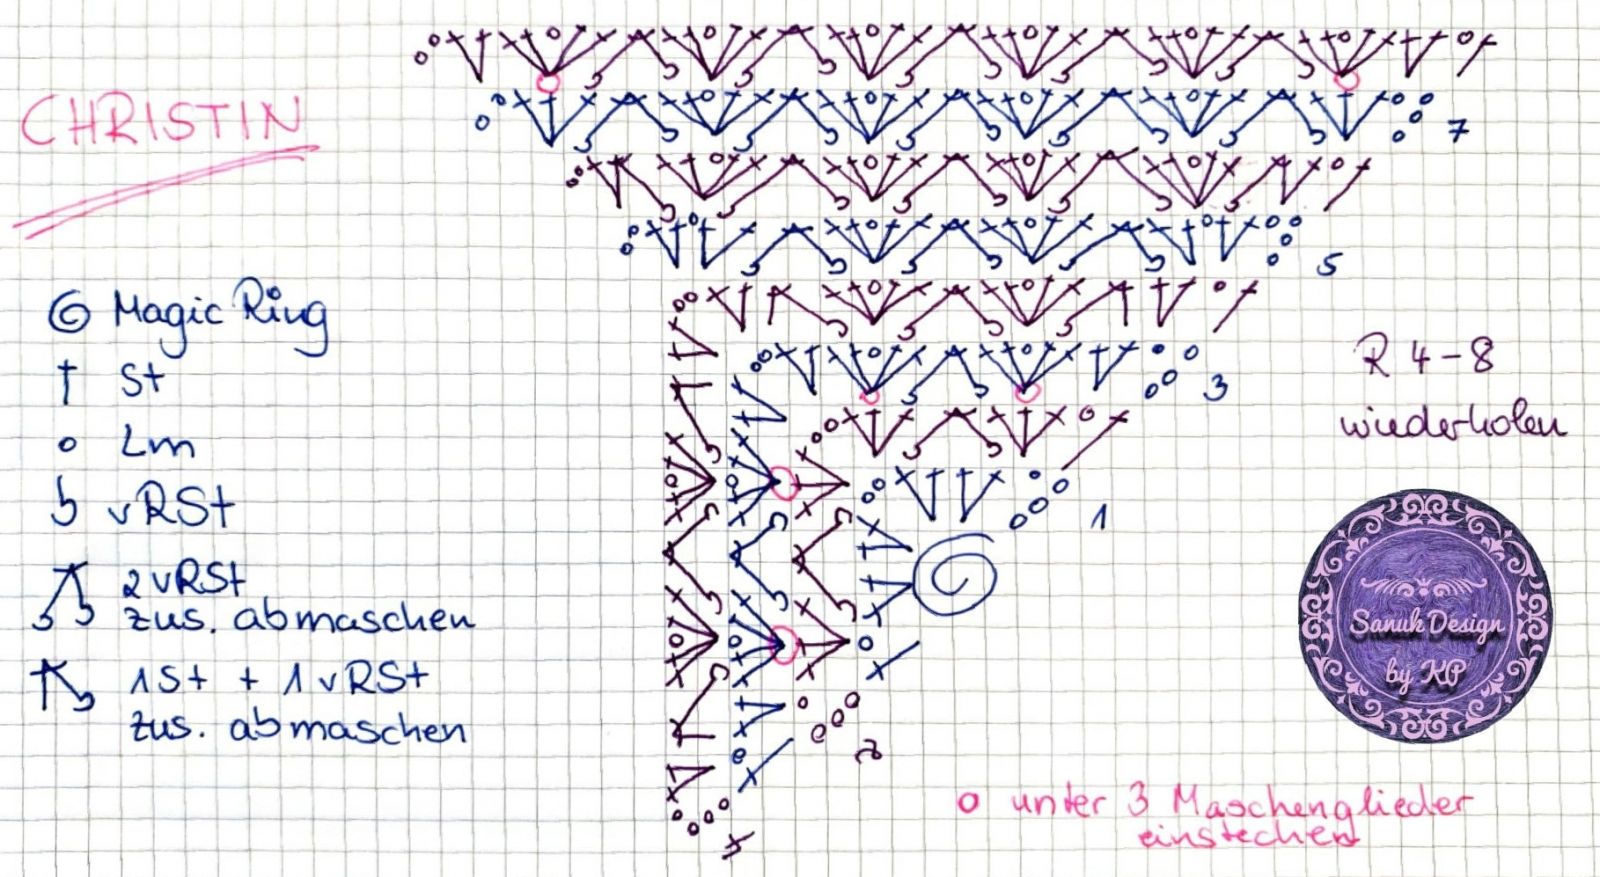 CHRISTIN
7
5
3
1
2
4
Magic Ring
St
Lm
vRSt
2 vRSt
zus. abmaschen
1St + 1 vRSt
zus. abmaschen
R 4-8
wiederholen
Sanuk Design
by KP
o unter 3 Maschenglieder
einstechen